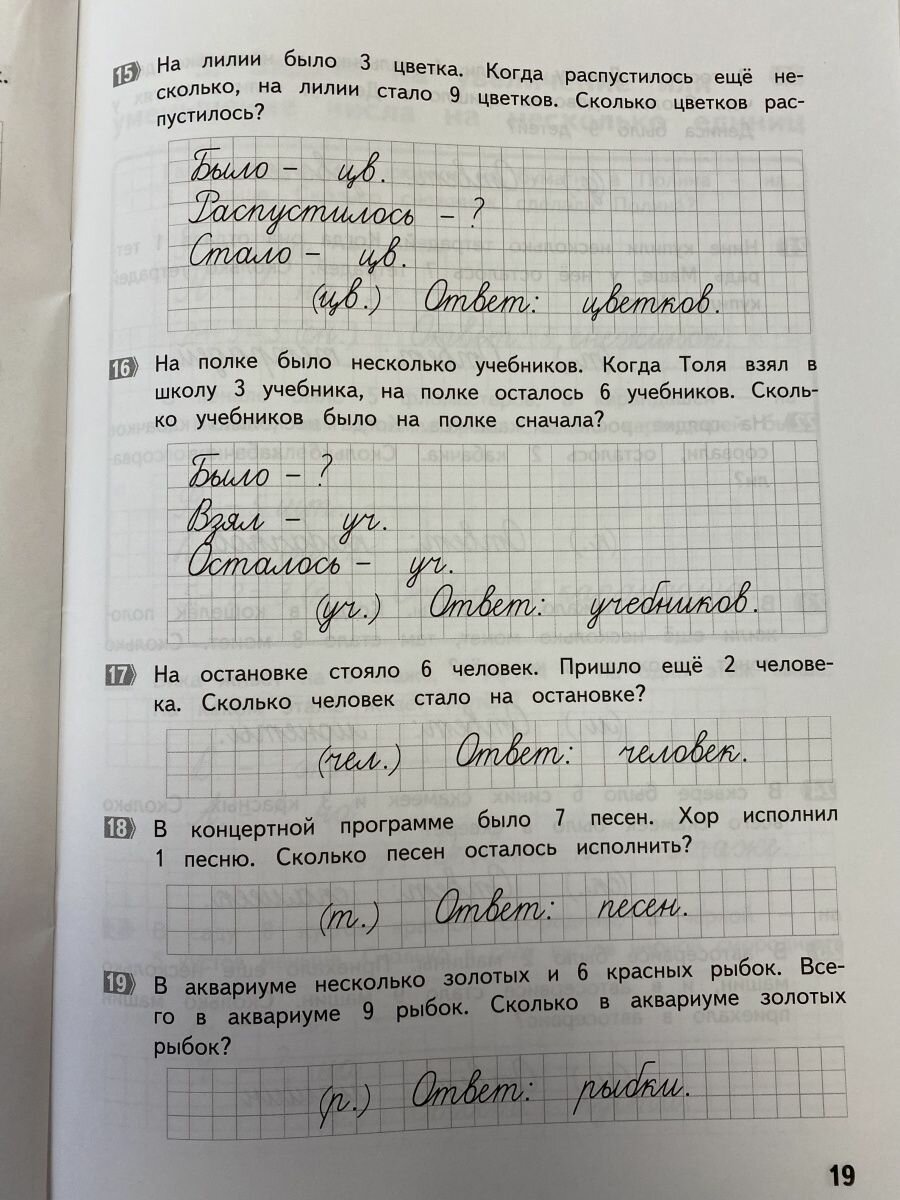 15 На лилии было 3 цветка. Когда распустилось ещё не-
сколько, на лилии стало 9 цветков. Сколько цветков рас-
пустилось?
Было – цв.
Распустилось – ?
Стало – цв.
(цв.) Ответ: цветков.
16 На полке было несколько учебников. Когда Толя взял в
школу 3 учебника, на полке осталось 6 учебников. Сколь-
ко учебников было на полке сначала?
Было – ?
Взял – уч.
Осталось – уч.
(уч.) Ответ: учебников.
17 На остановке стояло 6 человек. Пришло ещё 2 челове-
ка. Сколько человек стало на остановке?
(чел.) Ответ: человек.
18 В концертной программе было 7 песен. Хор исполнил
1 песню. Сколько песен осталось исполнить?
(т.) Ответ: песен.
19 В аквариуме несколько золотых и 6 красных рыбок. Все-
го в аквариуме 9 рыбок. Сколько в аквариуме золотых
рыбок?
(р.) Ответ: рыбки.
19